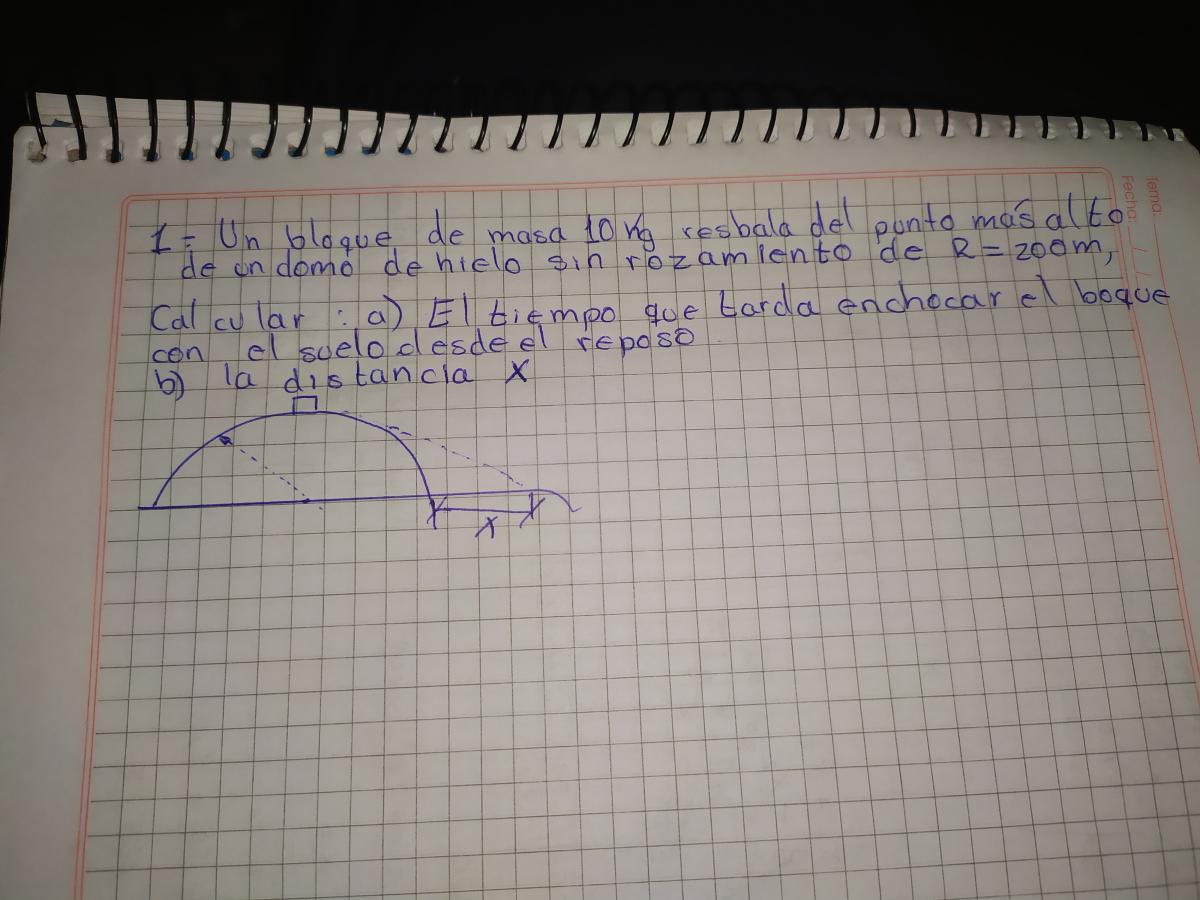 1= Un bloque de masa 10 Kg resbala del punto más alto
de un domo de hielo sin rozamiento de R = 200m,
Calcular : a) El tiempo que tarda enchocar el boque
con el suelo desde el reposo
b) la distancia X
X
Tema:
Fecha: / /